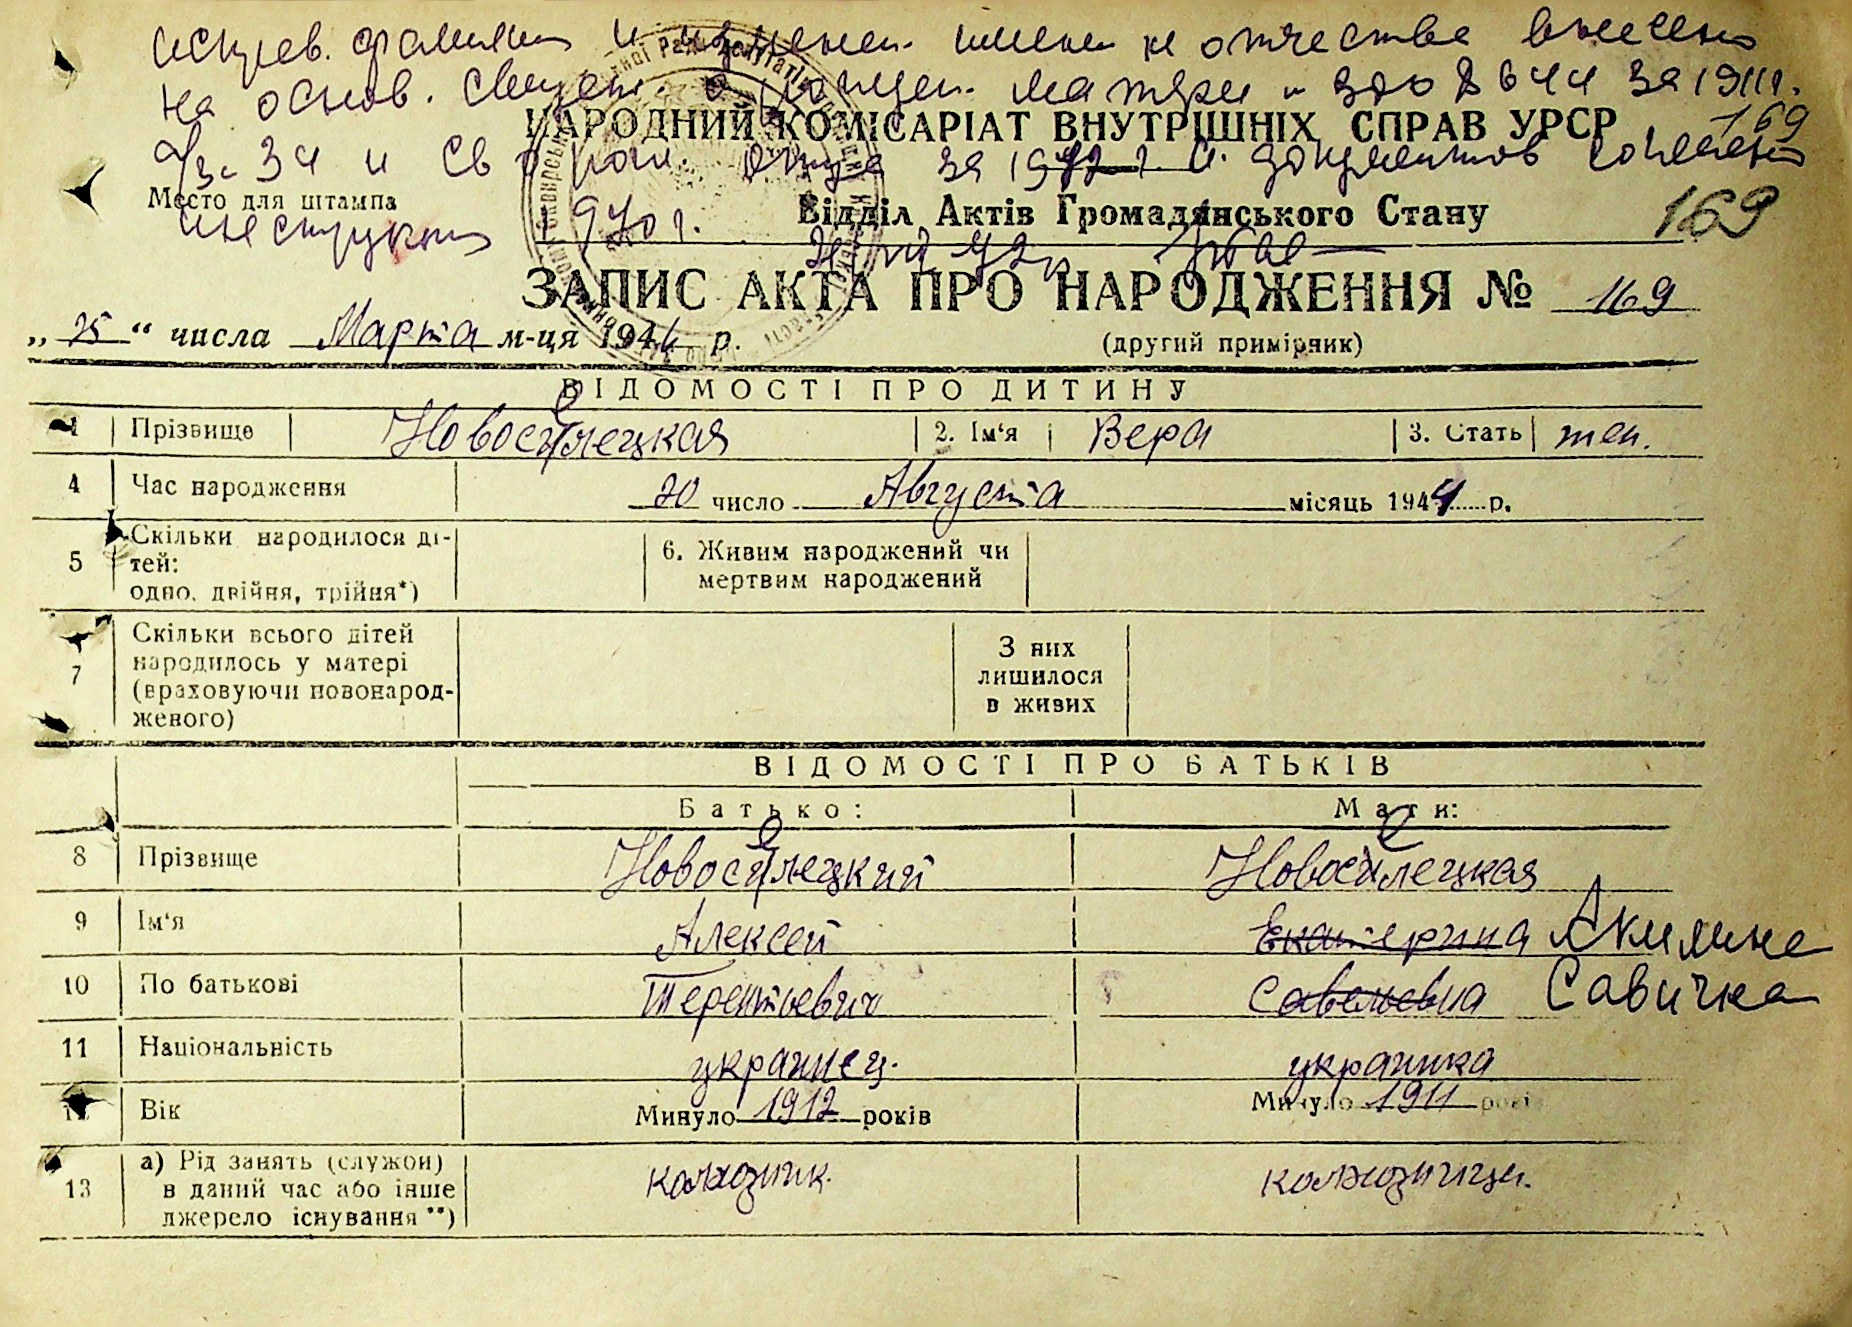 исправ. фамилии и изменен. имени и отчества внесено
на основ. свидет. о рожден. матери за 1911г.
НАРОДНИЙ КОМІСАРІАТ ВНУТРІШНІХ СПРАВ УРСР 169
34 и св о рож. отца за 1912 г. и документов согласно
Место для штампа Відділ Актів Громадянського Стану 169
инструкции 1970 г.
ЗАПИС АКТА ПРО НАРОДЖЕННЯ № 169
„25“ числа Марта м-ця 1944 р. (другий примірник)
ВІДОМОСТІ ПРО ДИТИНУ
1 Прізвище Новосілецкая 2. Ім'я Вера 3. Стать жен.
4 Час народження 20 число Августа місяць 1944 р.
5 Скільки народилося ді-
тей:
одно, двійня, трійня*)
6. Живим народжений чи
мертвим народжений
7 Скільки всього дітей
народилось у матері
(враховуючи новонарод-
женого)
З них
лишилося
в живих
ВІДОМОСТІ ПРО БАТЬКІВ
Батько: Мати:
8 Прізвище Новосілецкий Новосілецкая
9 Ім'я Алексей Екатерина Акилина
10 По батькові Терентьевич Савельевна Савична
11 Національність украинец. украинка
12 Вік Минуло 1912 років Минуло 1911 років
13 а) Рід занять (служби)
в даний час або інше
джерело існування **)
колхозник. колхозница.